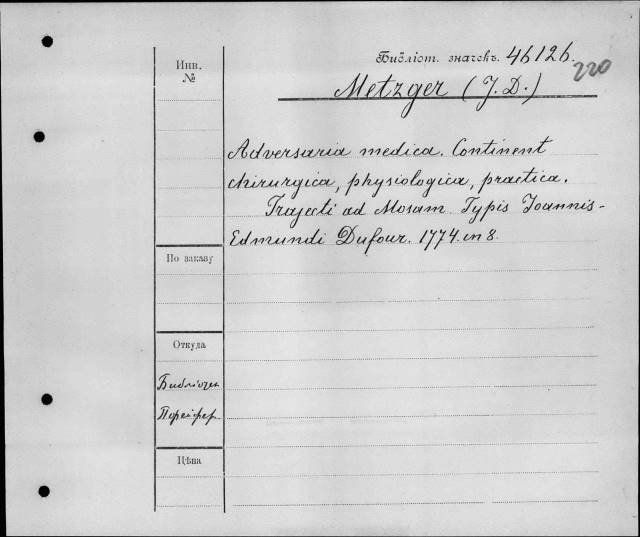 Инв.
№
Библіот. значекъ. 46126.
220
Metzger (J. D.)
Adversaria medica. Continent
chirurgica, physiologica, practica.
Trajecti ad Mosam. Typis Joannis-
Edmundi Dufour. 1774. in 8.
По заказу
Откуда
Библіотек
Цѣна